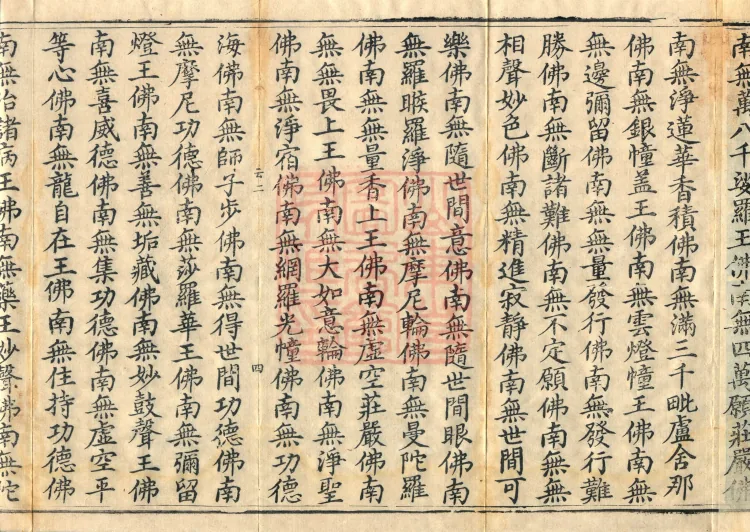 南無萬八千娑羅王佛南無四萬願莊嚴佛
南無淨蓮華香積佛南無滿三千毗盧舍那
佛南無銀幢蓋王佛南無雲燈幢王佛南無
無邊彌留佛南無無量發行佛南無發行難
勝佛南無斷諸難佛南無不定願佛南無無
相聲妙色佛南無精進寂靜佛南無世間可
樂佛南無隨世間意佛南無隨世間眼佛南
無羅睺羅淨佛南無摩尼輪佛南無曼陀羅
佛南無無量香上王佛南無虛空莊嚴佛南
無無畏上王佛南無大如意輪佛南無淨聖
佛南無淨宿佛南無網羅光幢佛南無功德
云二 四
海佛南無師子步佛南無得世間功德佛南
無摩尼功德佛南無莎羅華王佛南無彌留
燈王佛南無善無垢藏佛南無妙鼓聲王佛
南無喜威德佛南無集功德佛南無虛空平
等心佛南無龍自在王佛南無住持功德佛
南無治諸病王佛南無藥王妙聲佛南無陀